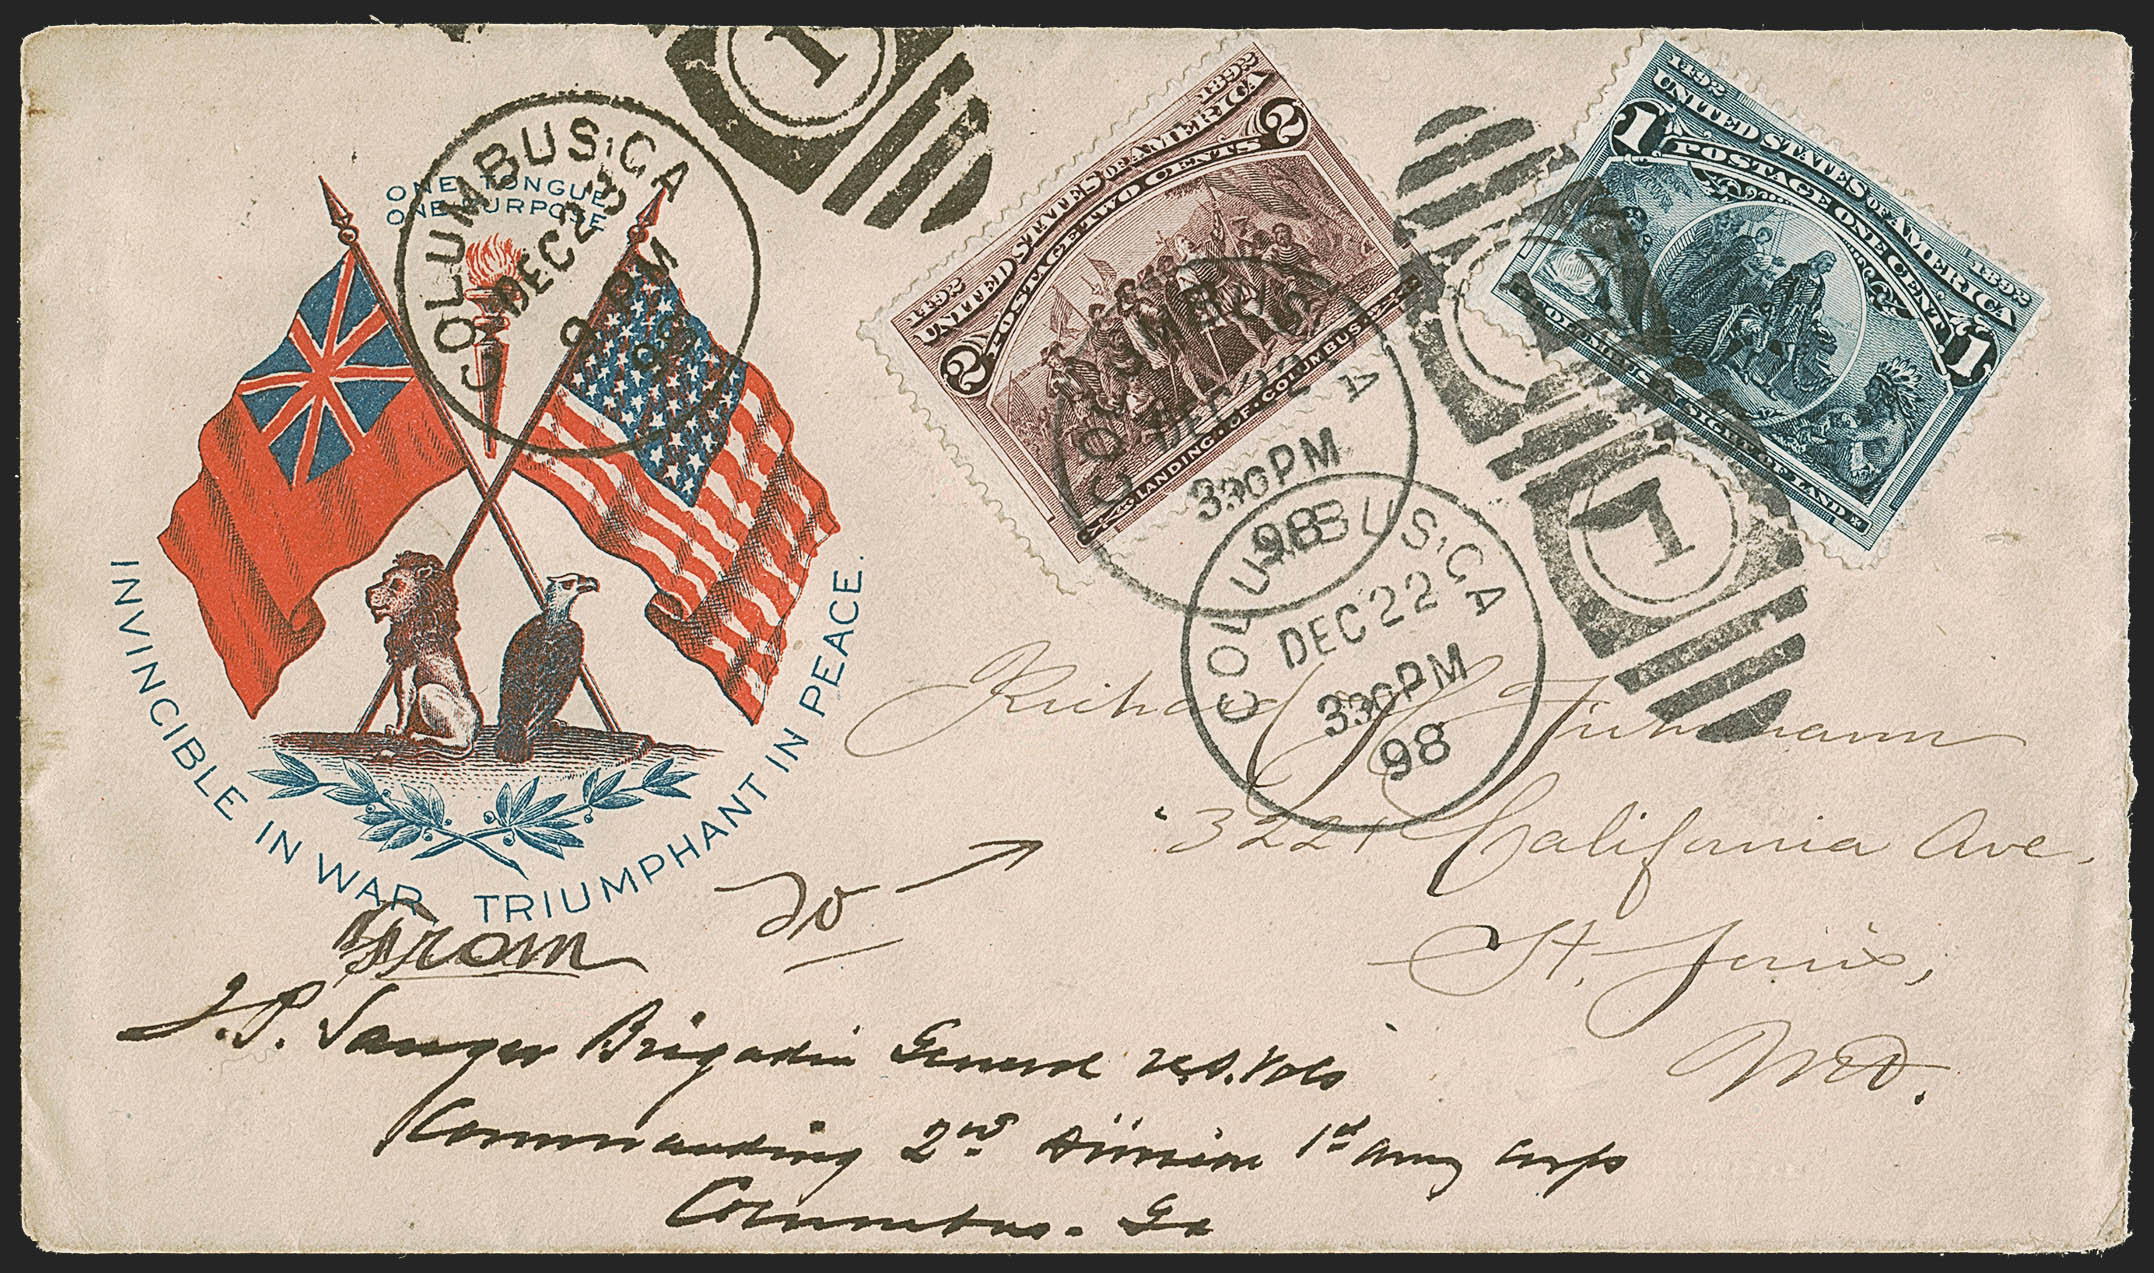 ONE TONGUE
ONE PURPOSE
INVINCIBLE IN WAR TRIUMPHANT IN PEACE.
COLUMBUS, GA
DEC 23
9 PM
98
1
1492 1892
UNITED STATES OF AMERICA
POSTAGE TWO CENTS
2 2
LANDING OF COLUMBUS
1492 1892
UNITED STATES OF AMERICA
POSTAGE ONE CENT
1 1
COLUMBUS IN SIGHT OF LAND
DEC 22
330PM
98
1
COLUMBUS, GA
DEC 22
330PM
98
1
Richard
3221 California Ave.
St. Louis,
MO.
To
From
J. P. Sanger Brigadier General U.S. Vols
Commanding 2nd division 1st Army Corps
Columbus. Ga